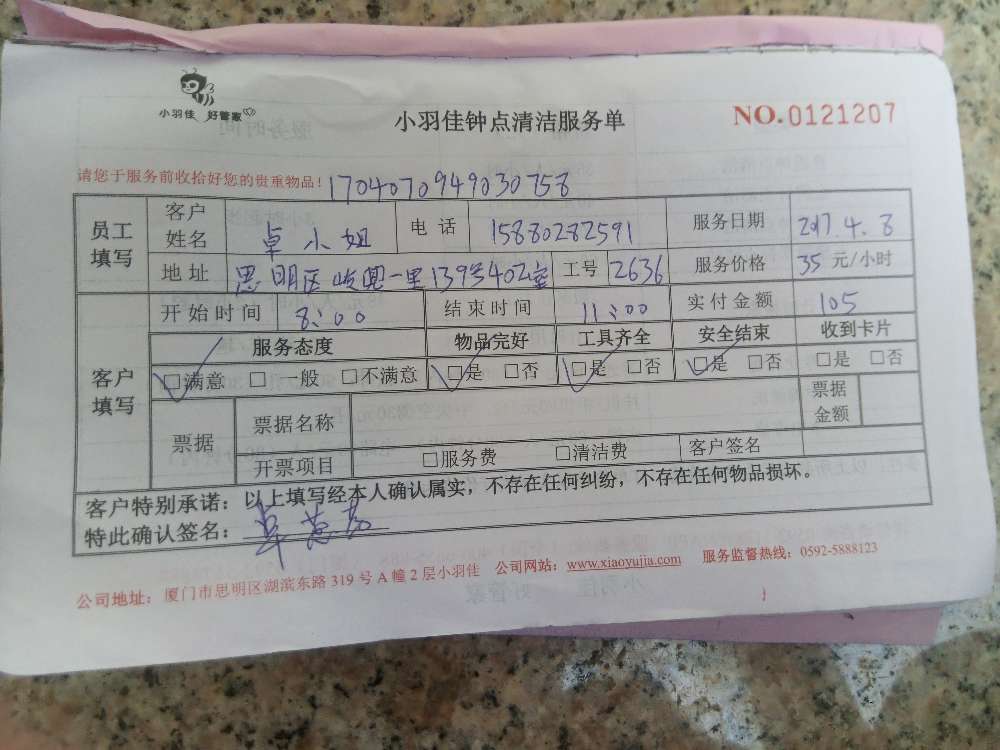 小羽佳 好管家
小羽佳钟点清洁服务单
NO.0121207
请您于服务前收拾好您的贵重物品！ 1704070949030758
员工填写 客户姓名 卓小姐 电话 15880282591 服务日期 2017.4.8
地址 思明区 一里139号402室 工号 2636 服务价格 35 元/小时
客户填写 开始时间 8:00 结束时间 11:00 实付金额 105
服务态度 物品完好 工具齐全 安全结束 收到卡片
□满意 □一般 □不满意 □是 □否 □是 □否 □是 □否 □是 □否
票据 票据名称 票据金额
开票项目 □服务费 □清洁费 客户签名
客户特别承诺：以上填写经本人确认属实，不存在任何纠纷，不存在任何物品损坏。
特此确认签名：
公司地址：厦门市思明区湖滨东路 319 号 A 幢 2 层小羽佳 公司网站：www.xiaoyujia.com 服务监督热线：0592-5888123